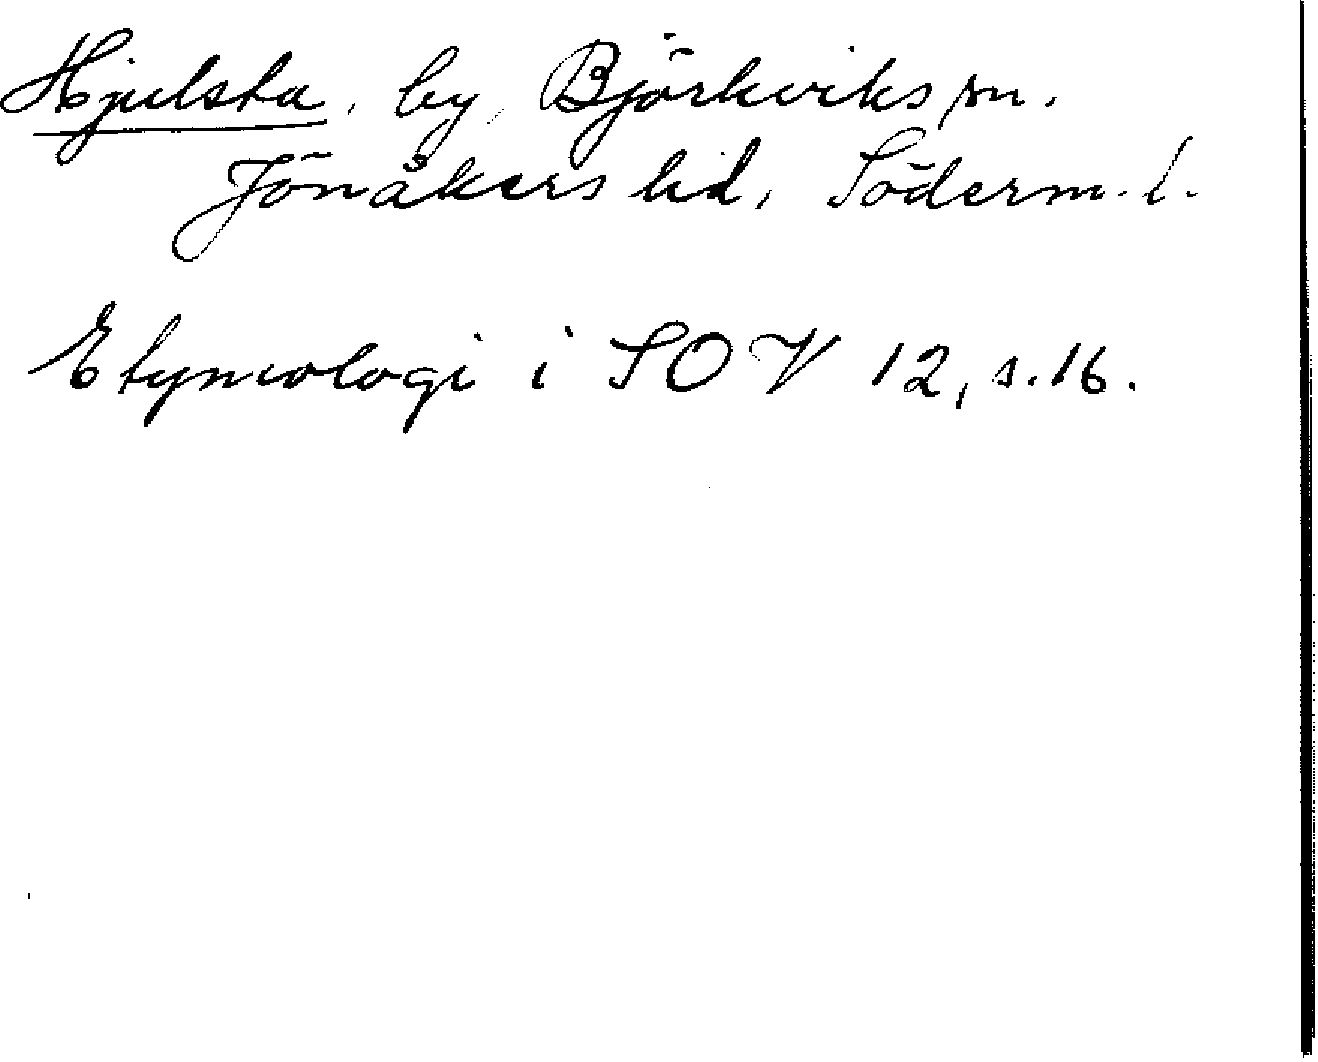 Hjulsta, by, Björkviks sn.
Jönåkers hd, Söderm. l.
Etymologi i SOV 12, s. 16.